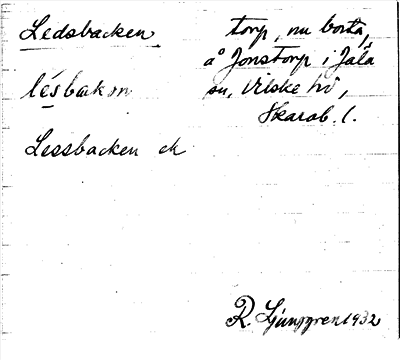 Ledsbacken torp, nu borta,
å Jonstorp i Jäla
lésbakm sn, Vilske hd,
Skarab. l.
Lessbacken ek
R. Ljunggren 1932